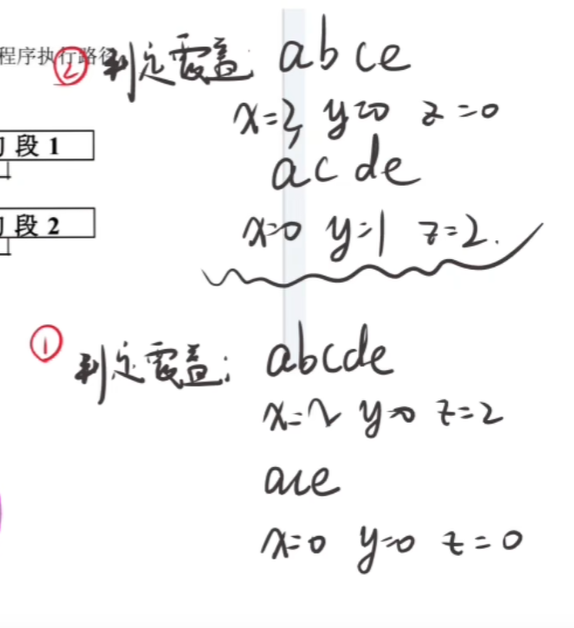 程序执行路径
② 判定覆盖: abce
x=2, y=0 z=0
段 1
acde
段 2
x=0 y=1 z=2.
① 判定覆盖: abcde
x=2 y=0 z=2
ace
x=0 y=0 z=0